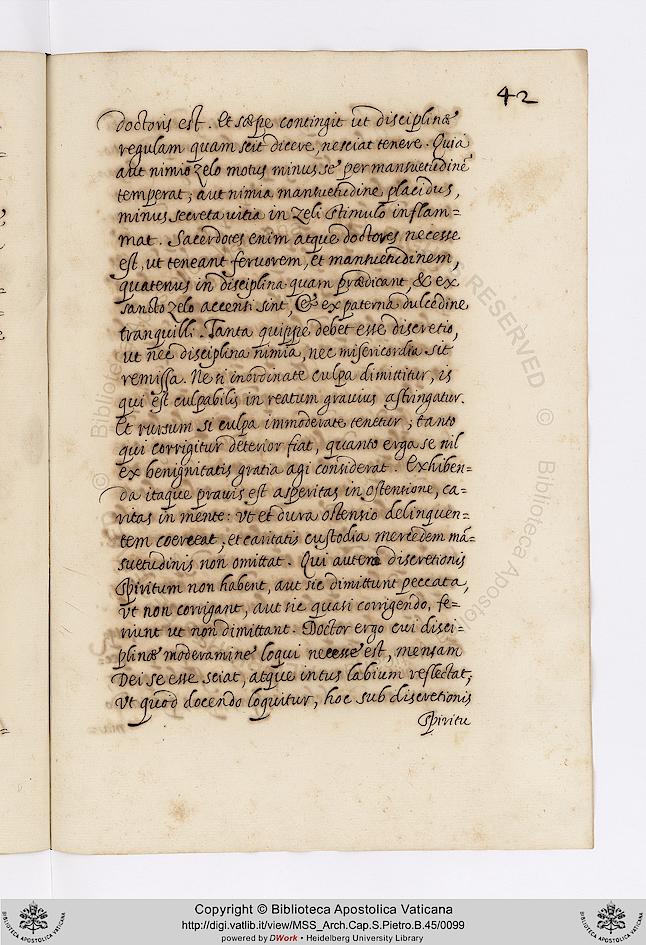 42
doctoris est. Et sæpe contingit ut disciplinæ
regulam quam scit dicere, nesciat tenere. Quia
aut nimio zelo motus minus se per mansuetudinē
temperat; aut nimia mansuetudine placidus,
minus secreta uitia in zeli stimulo inflam=
mat. Sacerdotes enim atque doctores necesse
est, ut teneant feruorem, et mansuetudinem,
quatenus in disciplina quam prædicant, & ex
sancto zelo accensi sint, & ex paterna dulcedine
tranquilli. Tanta quippe debet esse discretio,
ut nec disciplina nimia, nec misericordia sit
remissa. Ne si inordinate culpa dimittitur, is
qui est culpabilis in reatum grauius astringatur.
Et rursum si culpa immoderate tenetur; tanto
qui corrigitur deterior fiat, quanto erga se nil
ex benignitatis gratia agi considerat. Exhiben=
da itaque prauis est asperitas in ostensione, ca=
ritas in mente: Vt et dura ostensio delinquen=
tem coerceat, et caritatis custodia mercedem mā=
suetudinis non omittat. Qui autem discretionis
Spiritum non habent, aut sic dimittunt peccata,
Vt non corrigant, aut sic quasi corrigendo, fe=
riunt ut non dimittant. Doctor ergo cui disci=
plinæ moderamine loqui necesse est, mensam
Dei se esse sciat, atque intus labium reflectat;
Vt quod docendo loquitur, hoc sub discretionis
Spiritu
Copyright © Biblioteca Apostolica Vaticana
http://digi.vatlib.it/view/MSS_Arch.Cap.S.Pietro.B.45/0099
powered by DWork • Heidelberg University Library